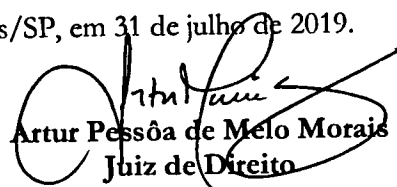 s/SP, em 31 de julho de 2019.
Artur Pessôa de Melo Morais
Juiz de Direito